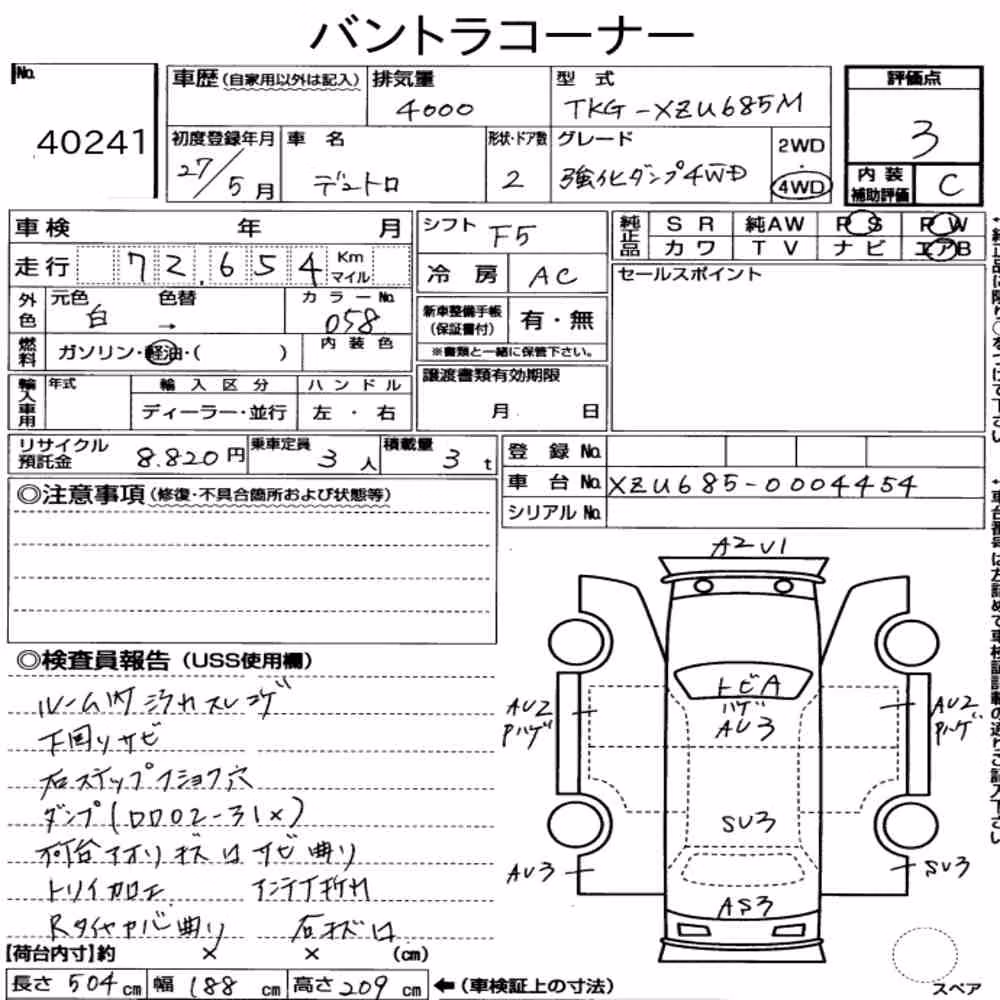 バントラコーナー
No.
40241
車歴(自家用以外は記入)
排気量
4000
型式
TKG-XZU685M
評価点
3
初度登録年月
27/5月
車名
デュトロ
形状・ドア数
2
グレード
強化ダンプ4WD
2WD
・
4WD
内装
補助評価
C
車検 年 月
走行 72,654 Km マイル
シフト F5
冷房 AC
純正品
SR 純AW PS PW
カワ TV ナビ エアB
セールスポイント
外色
元色 色替
白 →
カラーNo.
058
燃料
ガソリン・軽油・( )
内装色
新車整備手帳
(保証書付)
有・無
※書類と一緒に保管下さい。
輸入車用
年式
輸入区分
ディーラー・並行
ハンドル
左・右
譲渡書類有効期限
月 日
リサイクル
預託金
8.820円
乗車定員
3人
積載量
3t
登録No.
車台No. XZU685-0004454
シリアルNo.
◎注意事項(修復・不具合箇所および状態等)
◎検査員報告(USS使用欄)
ルーム内汚れスレコゲ
下回りサビ
右ステップフショク穴
ダンプ(DD02-31X)
荷台アオリキズ凹サビ曲り
Rタイヤカバー曲り
A2 U1
トビA
ハゲ
AU3
AU2
Pハゲ
AU2
Pハゲ
SU3
AU3
SU3
AS3
スペア
【荷台内寸】約 × × (cm)
長さ 504cm 幅 188cm 高さ 209cm ←(車検証上の寸法)